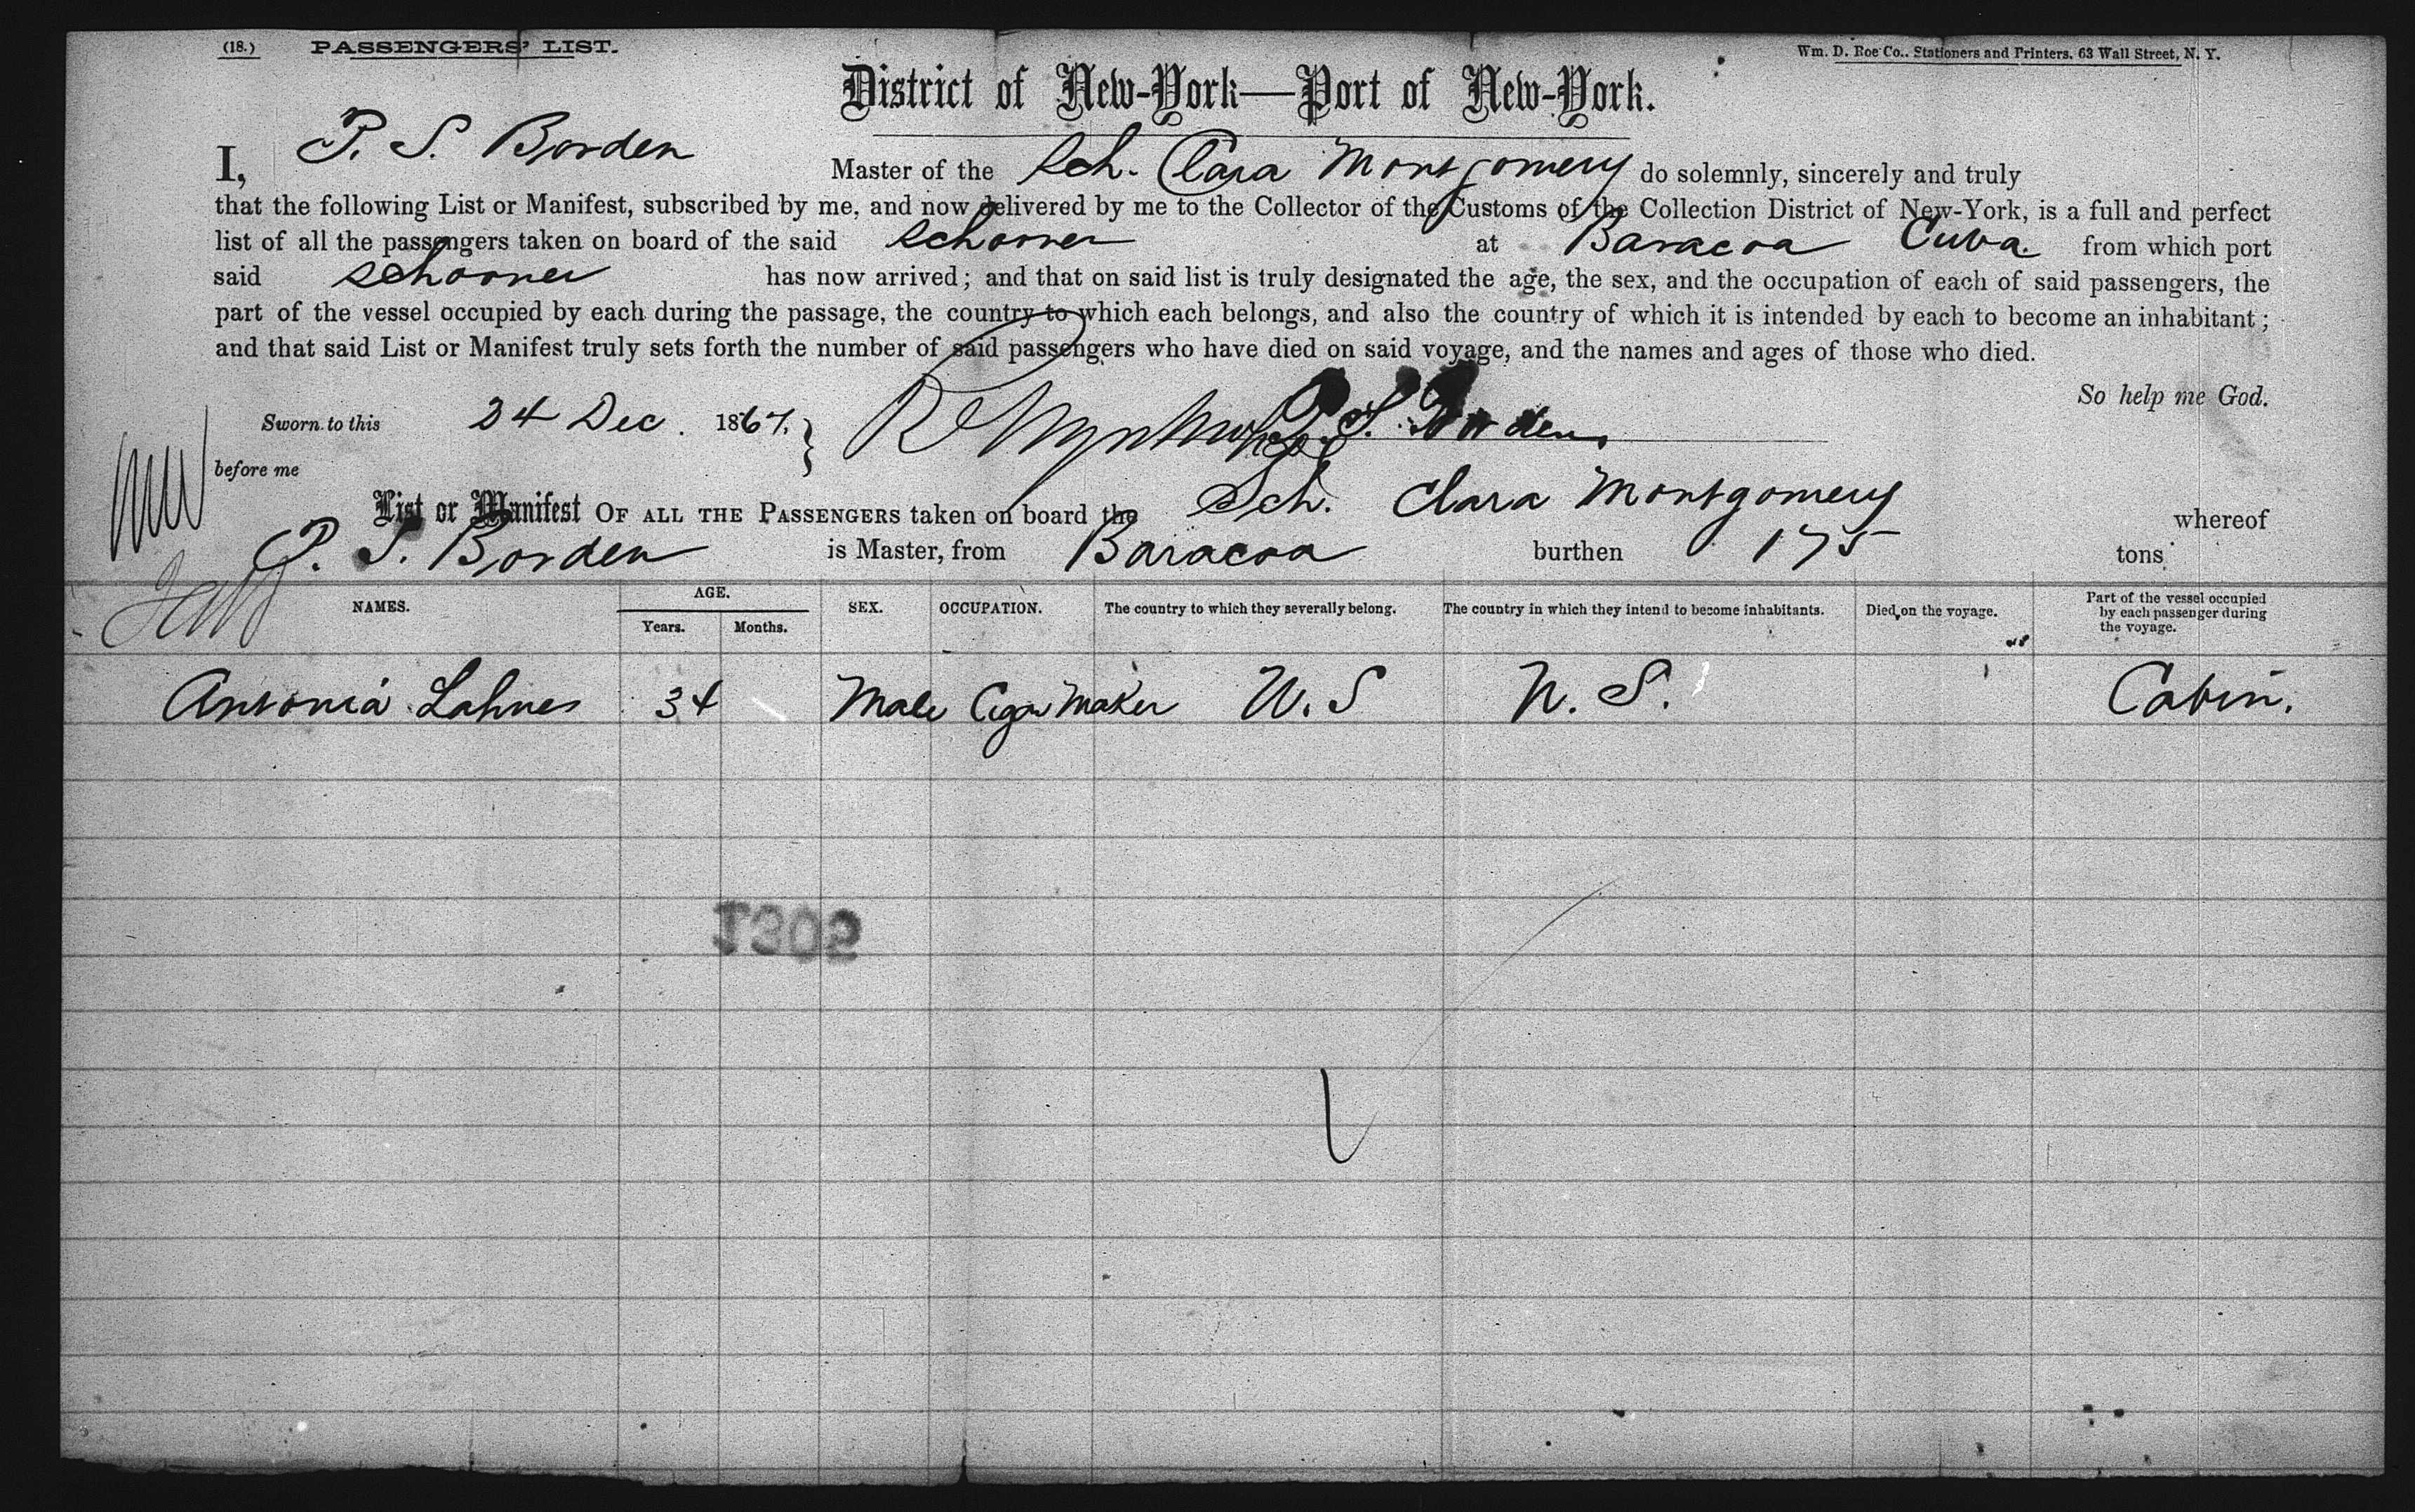 (18.) PASSENGERS' LIST.
Wm. D. Roe Co., Stationers and Printers, 63 Wall Street, N. Y.
District of New-York—Port of New-York.
I, P. S. Borden Master of the Sch. Clara Montgomery do solemnly, sincerely and truly
that the following List or Manifest, subscribed by me, and now delivered by me to the Collector of the Customs of the Collection District of New-York, is a full and perfect
list of all the passengers taken on board of the said schooner at Baracoa Cuba. from which port
said schooner has now arrived; and that on said list is truly designated the age, the sex, and the occupation of each of said passengers, the
part of the vessel occupied by each during the passage, the country to which each belongs, and also the country of which it is intended by each to become an inhabitant;
and that said List or Manifest truly sets forth the number of said passengers who have died on said voyage, and the names and ages of those who died.
So help me God.
Sworn to this 24 Dec. 1867. P. S. Borden
before me
List or Manifest OF ALL THE PASSENGERS taken on board the Sch. Clara Montgomery whereof
P. S. Borden is Master, from Baracoa burthen 175 tons
NAMES. AGE. Years. Months. SEX. OCCUPATION. The country to which they severally belong. The country in which they intend to become inhabitants. Died on the voyage. Part of the vessel occupied by each passenger during the voyage.
Antonia 34 Male Cigar Maker U.S U.S. Cabin.
1302